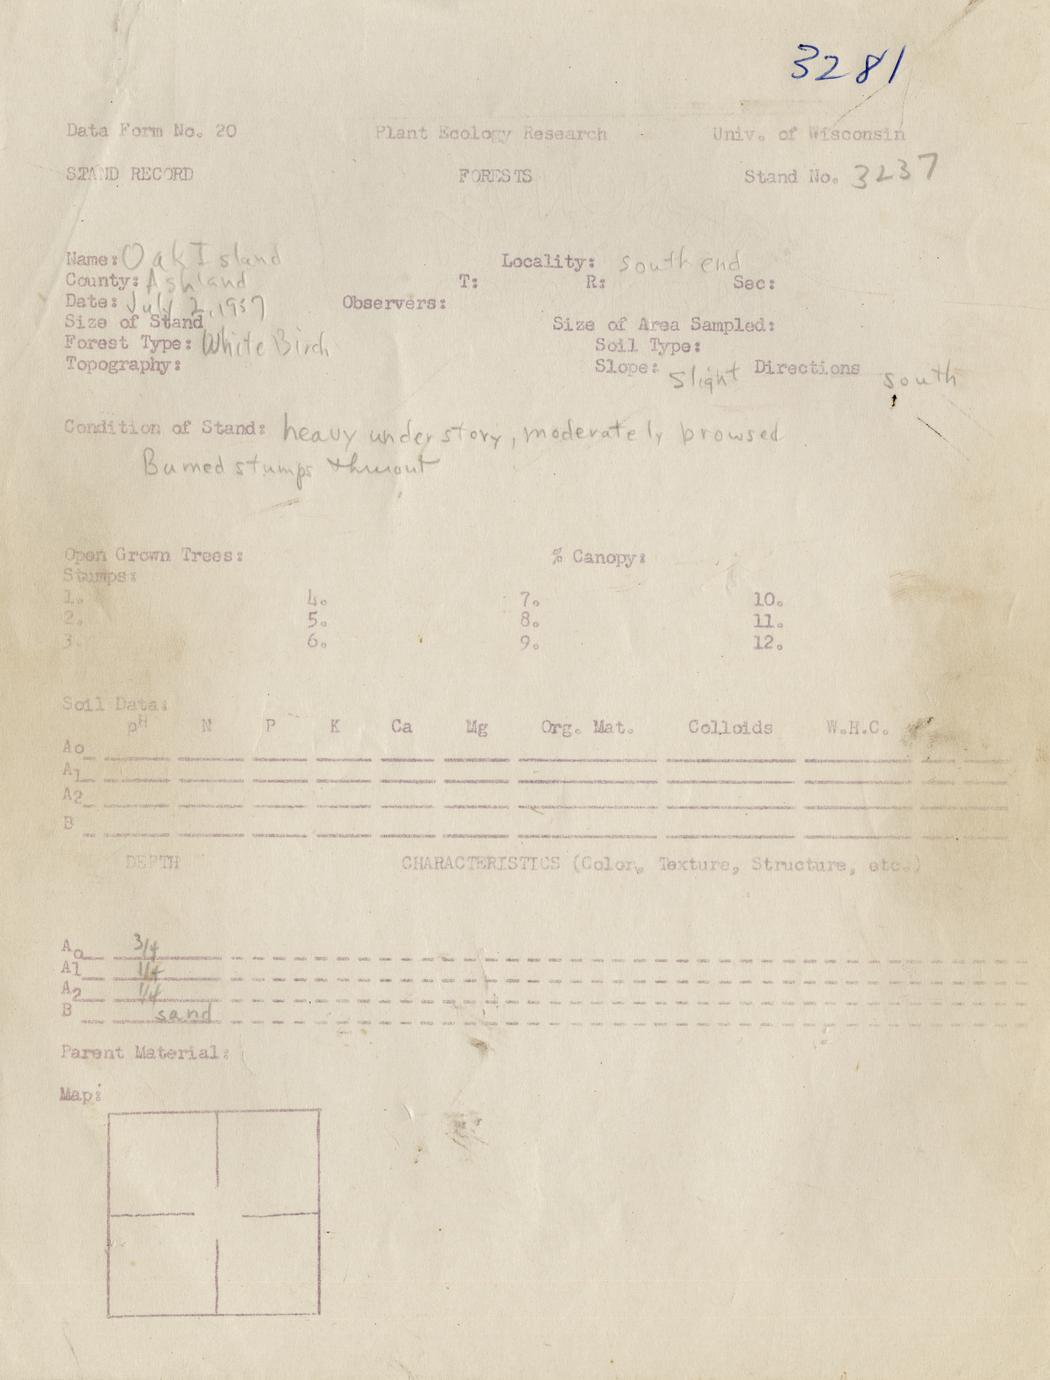 3281
Data Form No. 20 Plant Ecology Research Univ. of Wisconsin
STAND RECORD FORESTS Stand No. 3237
Name: Oak Island Locality: south end
County: Ashland T: R: Sec:
Date: July 2, 1957 Observers:
Size of Stand Size of Area Sampled:
Forest Type: White Birch Soil Type:
Topography: Slope: slight Directions south
Condition of Stand: heavy understory, moderately browsed
Burned stumps thruout
Open Grown Trees: % Canopy:
Stumps:
1. 4. 7. 10.
2. 5. 8. 11.
3. 6. 9. 12.
Soil Data:
pH N P K Ca Mg Org. Mat. Colloids W.H.C.
Ao
A1
A2
B
DEPTH CHARACTERISTICS (Color, Texture, Structure, etc.)
Ao 3/4
A1 1/4
A2 1/4
B sand
Parent Material:
Map: